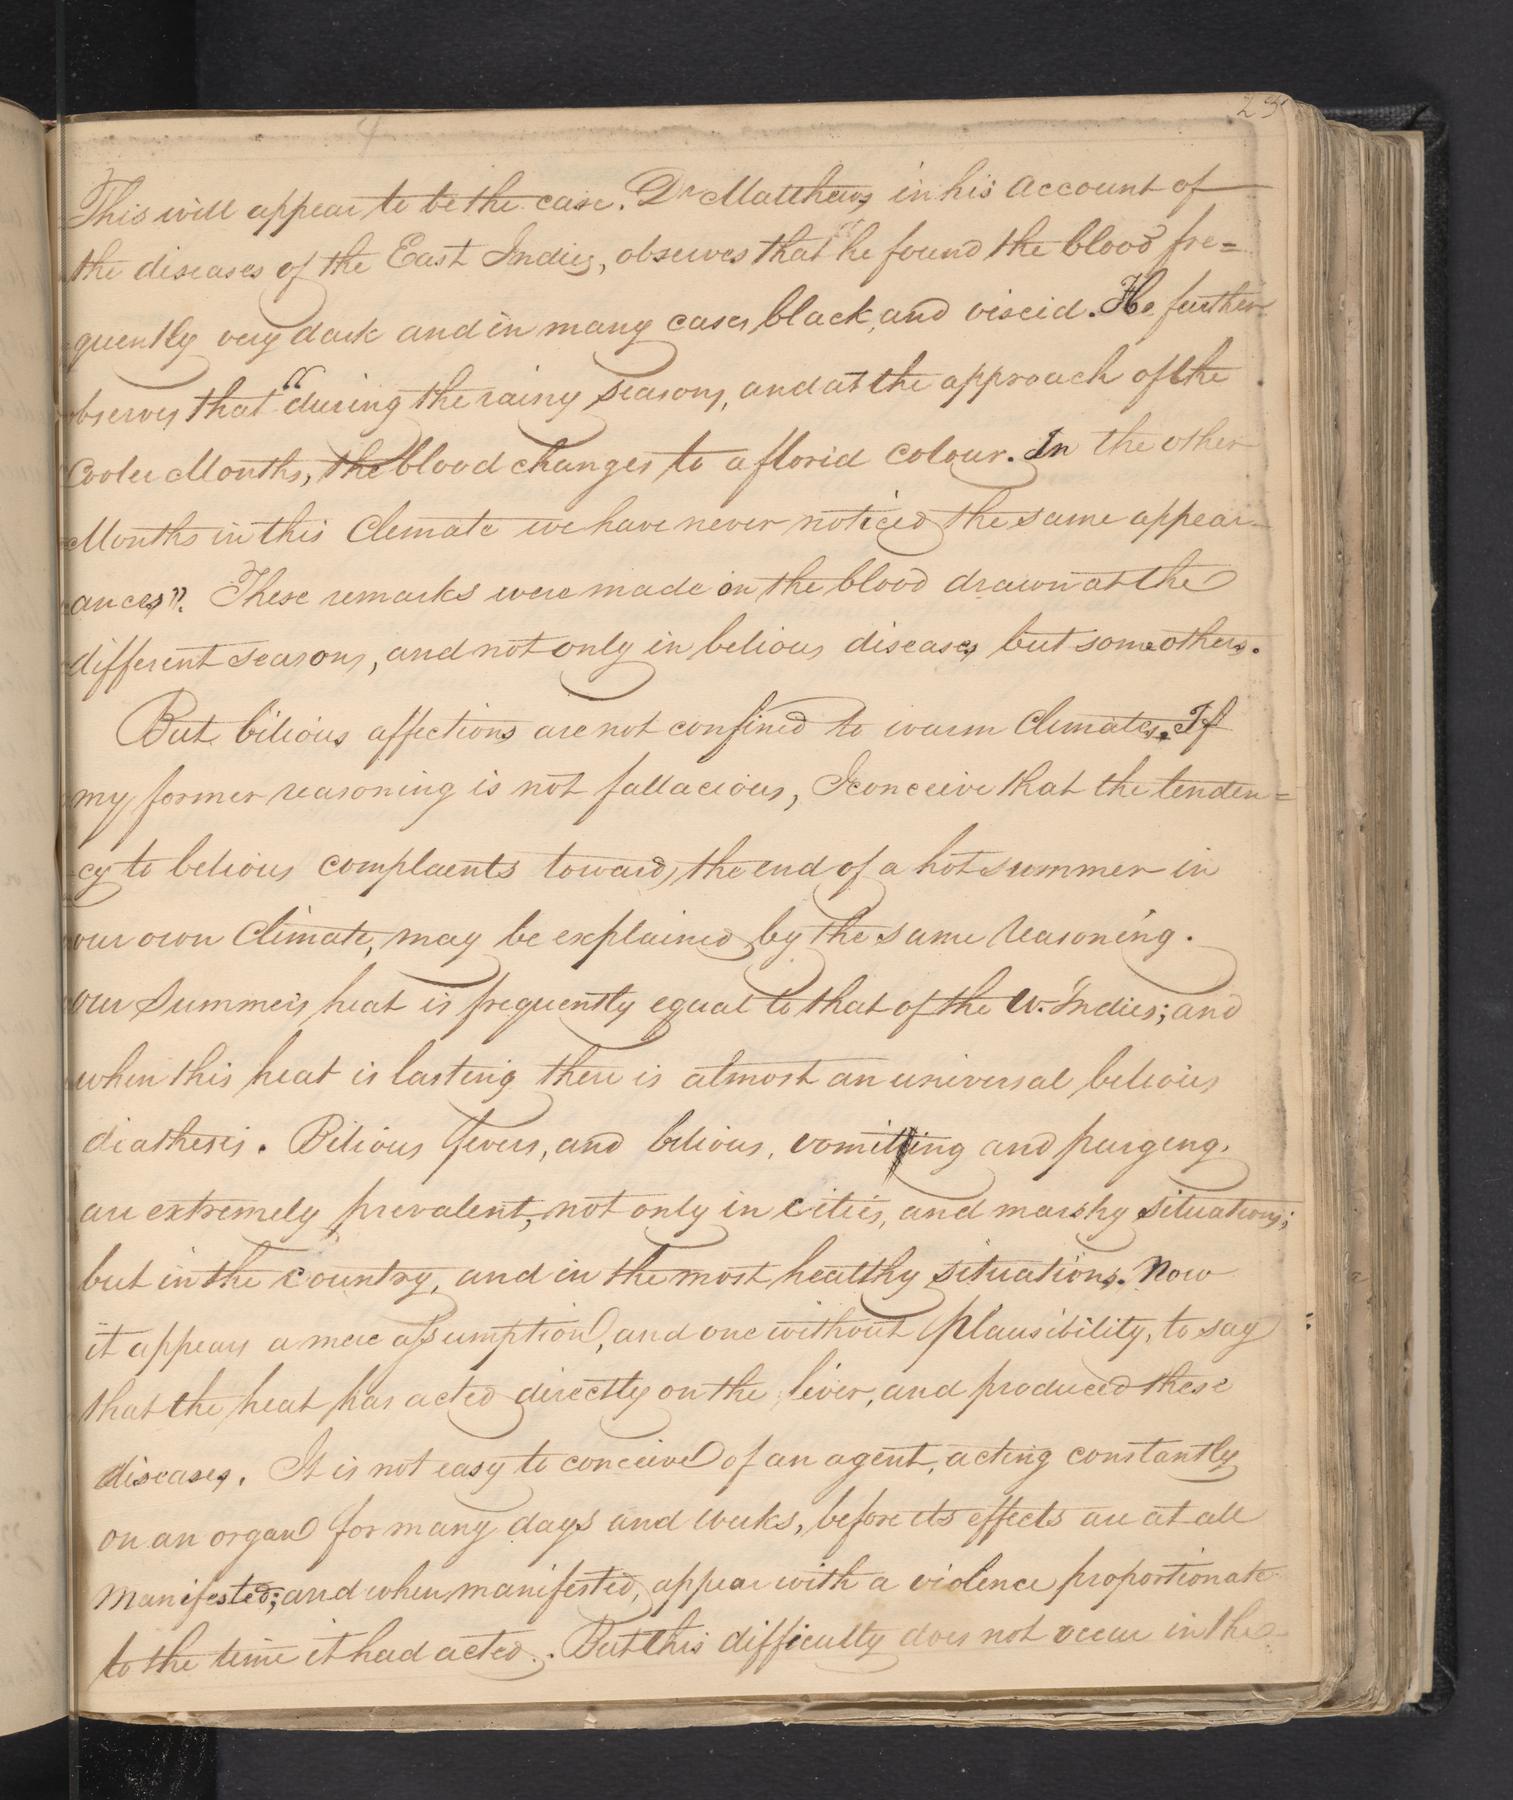 25
This will appear to be the case. Dr Matthews, in his account of
the diseases of the East Indies, observes that he found the blood fre=
quently very dark and in many cases, black, and viscid. He further
observes that "during the rainy seasons, and at the approach of the
Cooler Months, the blood changes to a florid colour. In the other
Months in this Climate we have never noticed the same appear-
ances". These remarks were made on the blood drawn at the
different seasons, and not only in belious diseases, but some others.
But bilious affections are not confined to warm Climates. If
my former reasoning is not fallacious, I conceive that the tenden=
cy to belious complaents towards, the end of a hot summer in
our own Climate, may be explained by the same reasoning.
our Summers heat is frequently equal to that of the W. Indies; and
when this heat is lasting there is almost an universal belious
diathesis. Bilious fevers, and bilious, vomitting and purging,
are extremely prevalent, not only in cities, and marshy situations;
but in the country, and in the most healthy situations. Now
it appears a mere assumption, and one without plausibility, to say
that the heat has acted directly on the liver, and produced these
diseases. It is not easy to conceive of an agent, acting constantly
on an organ for many days and weeks, before its effects are at all
manifested; and when manifested, appear with a violence proportionate
to the time it had acted. But this difficulty does not occur in the